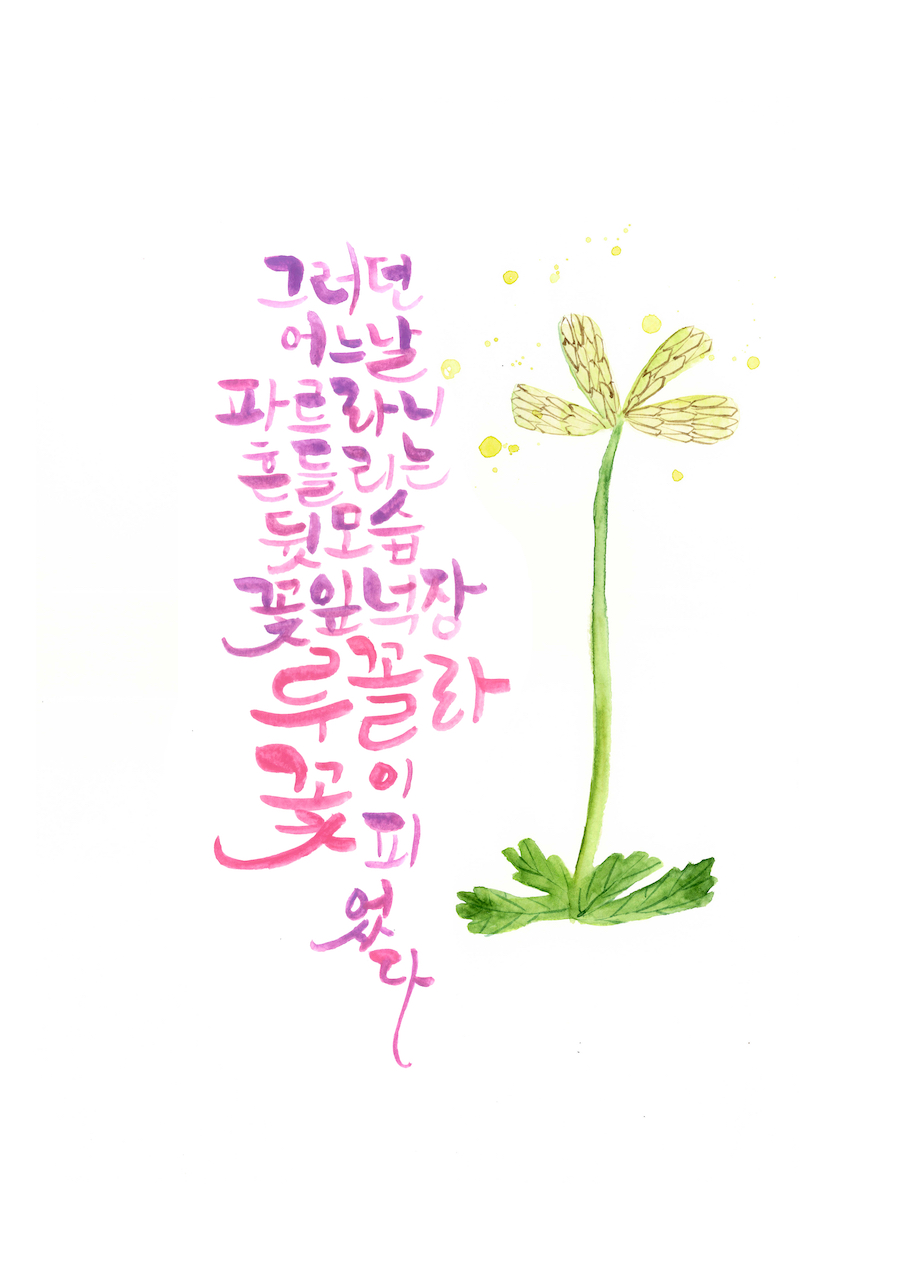 그러던
어느날
파르라니
흔들리는
뒷모습
꽃잎넉장
루꼴라
꽃이
피
었
다